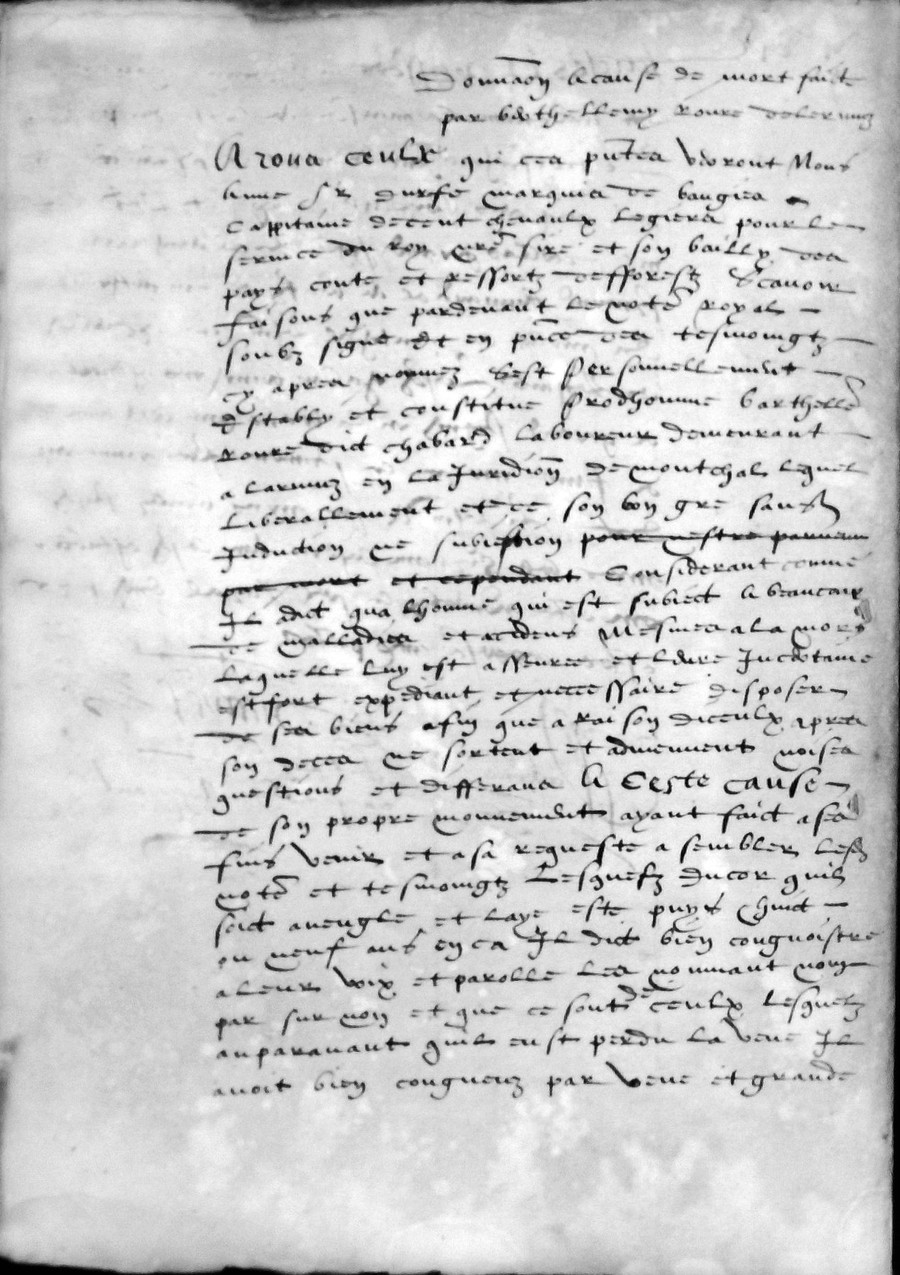 Donnaõn a cause de mort faict
par barthellemy roure de lermuz
A tous ceulx qui ces p̃ntes verront Nous
Anne sr durfe marquis de baugies
Cappitaine de cent chevaulx legiers pour le
service du Roy n̄re sire et son bailly des
pays conte et ressortz de fforestz Scavoir
faisons que pardevant le notē royal
soubz signe et en p̃nce des tesmoingtz
cy apres nommez Sest Personnellement
Establly et constitue Prodhomme barthellē
roure dict chabard laboureur demeurant
a larmuz en la Juridiõn de montchal lequel
liberallement et de son bon gre sans
Induction ne subiection pour nestre parvenu
par mort et cependant Considerant comme
Il dict qua lhomme qui est subiect a beaucoup
de malladies et accidens Mesmes a la mort
laquelle luy est asseuree et lheure Incertaine
est fort expediant et neccessaire disposer
de ses biens afin que a raison diceulx apres
son deces ne sortent et adviennent noises
questions et differans A Ceste cause
de son propre mouvement ayant faict a ses
fins venir et a sa requeste assembler lesd
notē et tesmoingtz Lesquelz encor quil
soict aveugle et laye este puys huict
ou neuf ans en ca Il dict bien congnoistre
a leur voix et parolle les nommant nom
par surnom et que ce sont de ceulx lesquelz
auparavant quil eust perdu la veue Il
avoit bien congneuz par veue et grande